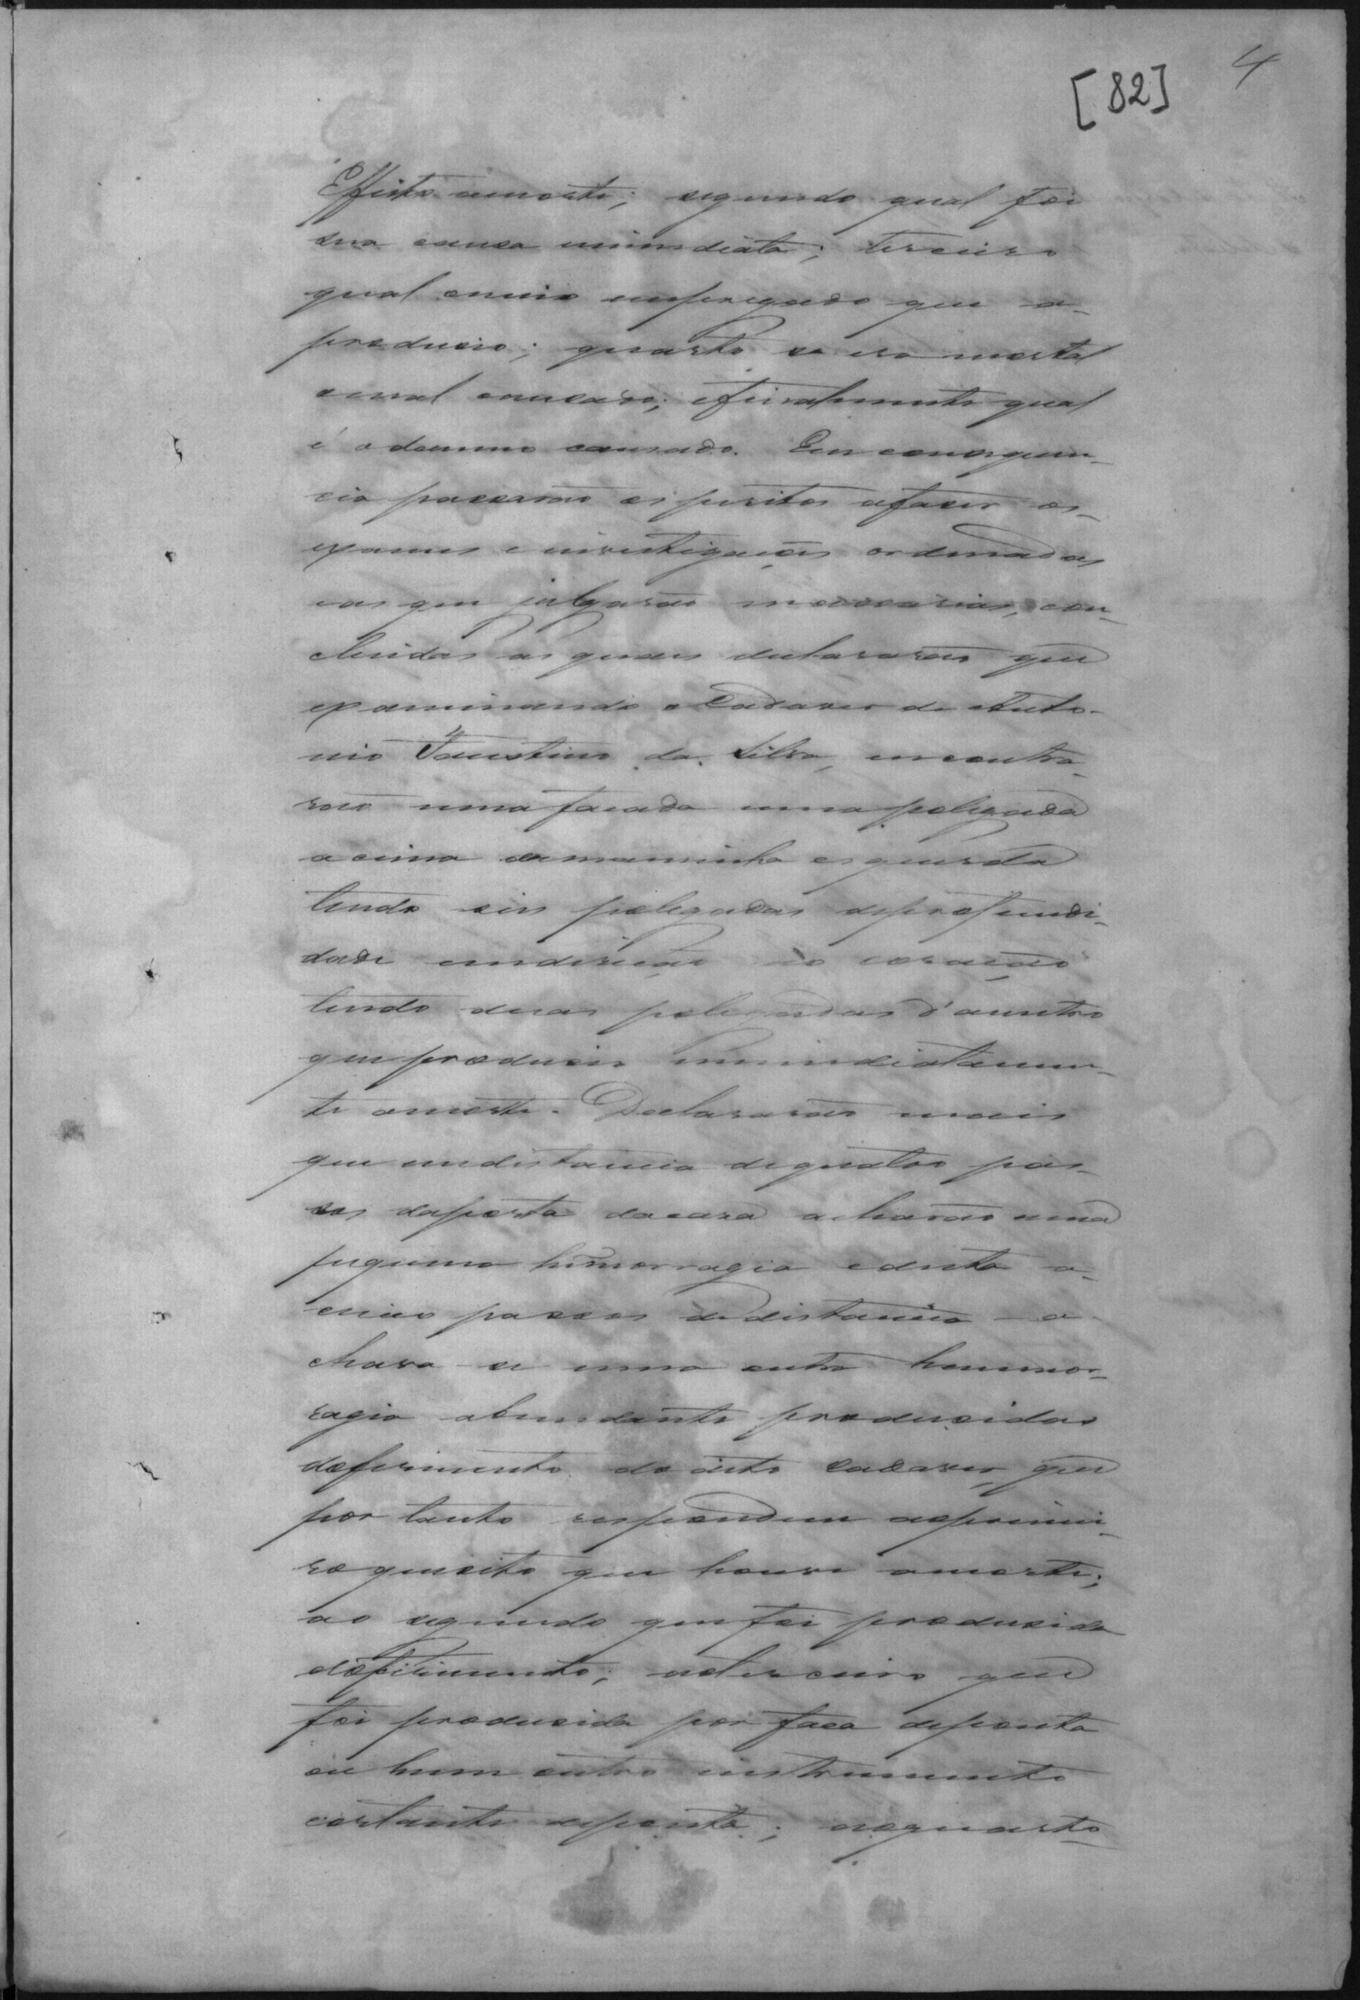 [82] 4
Effectiva morte; segundo qual foi
sua causa immediata; terceiro
qual o meio empregado que a
produzio; quarto se era mortal
o mal causado; e finalmente qual
é o damno causado. Em consequen-
cia passarão os peritos a fazer os
exames e investigações ordenadas
e as que julgarão necessarias, con-
cluidas as quaes declararão que
examinando o Cadaver de Anto-
nio Faustino da Silva, encontra-
rão uma facada uma polegada
acima da maminha esquerda
tendo seis polegadas de profundi-
dade em direcção ao coração
tendo duas polegadas d'ametro
que produzio immediatamen-
te a morte. Declararão mais
que em distancia de quatro pas-
sos da porta da casa acharão uma
pequena himorragia e desta a
cinco passos de distancia a-
chava-se uma outra hemmor-
ragia abundante produzidas
do ferimento do dito Cadaver, que
por tanto respondem ao primei-
ro quesito que houve a morte;
ao segundo que foi produzida
do ferimento; ao terceiro que
foi produzida por faca de ponta
ou hum outro instrumento
cortante de ponta; ao quarto